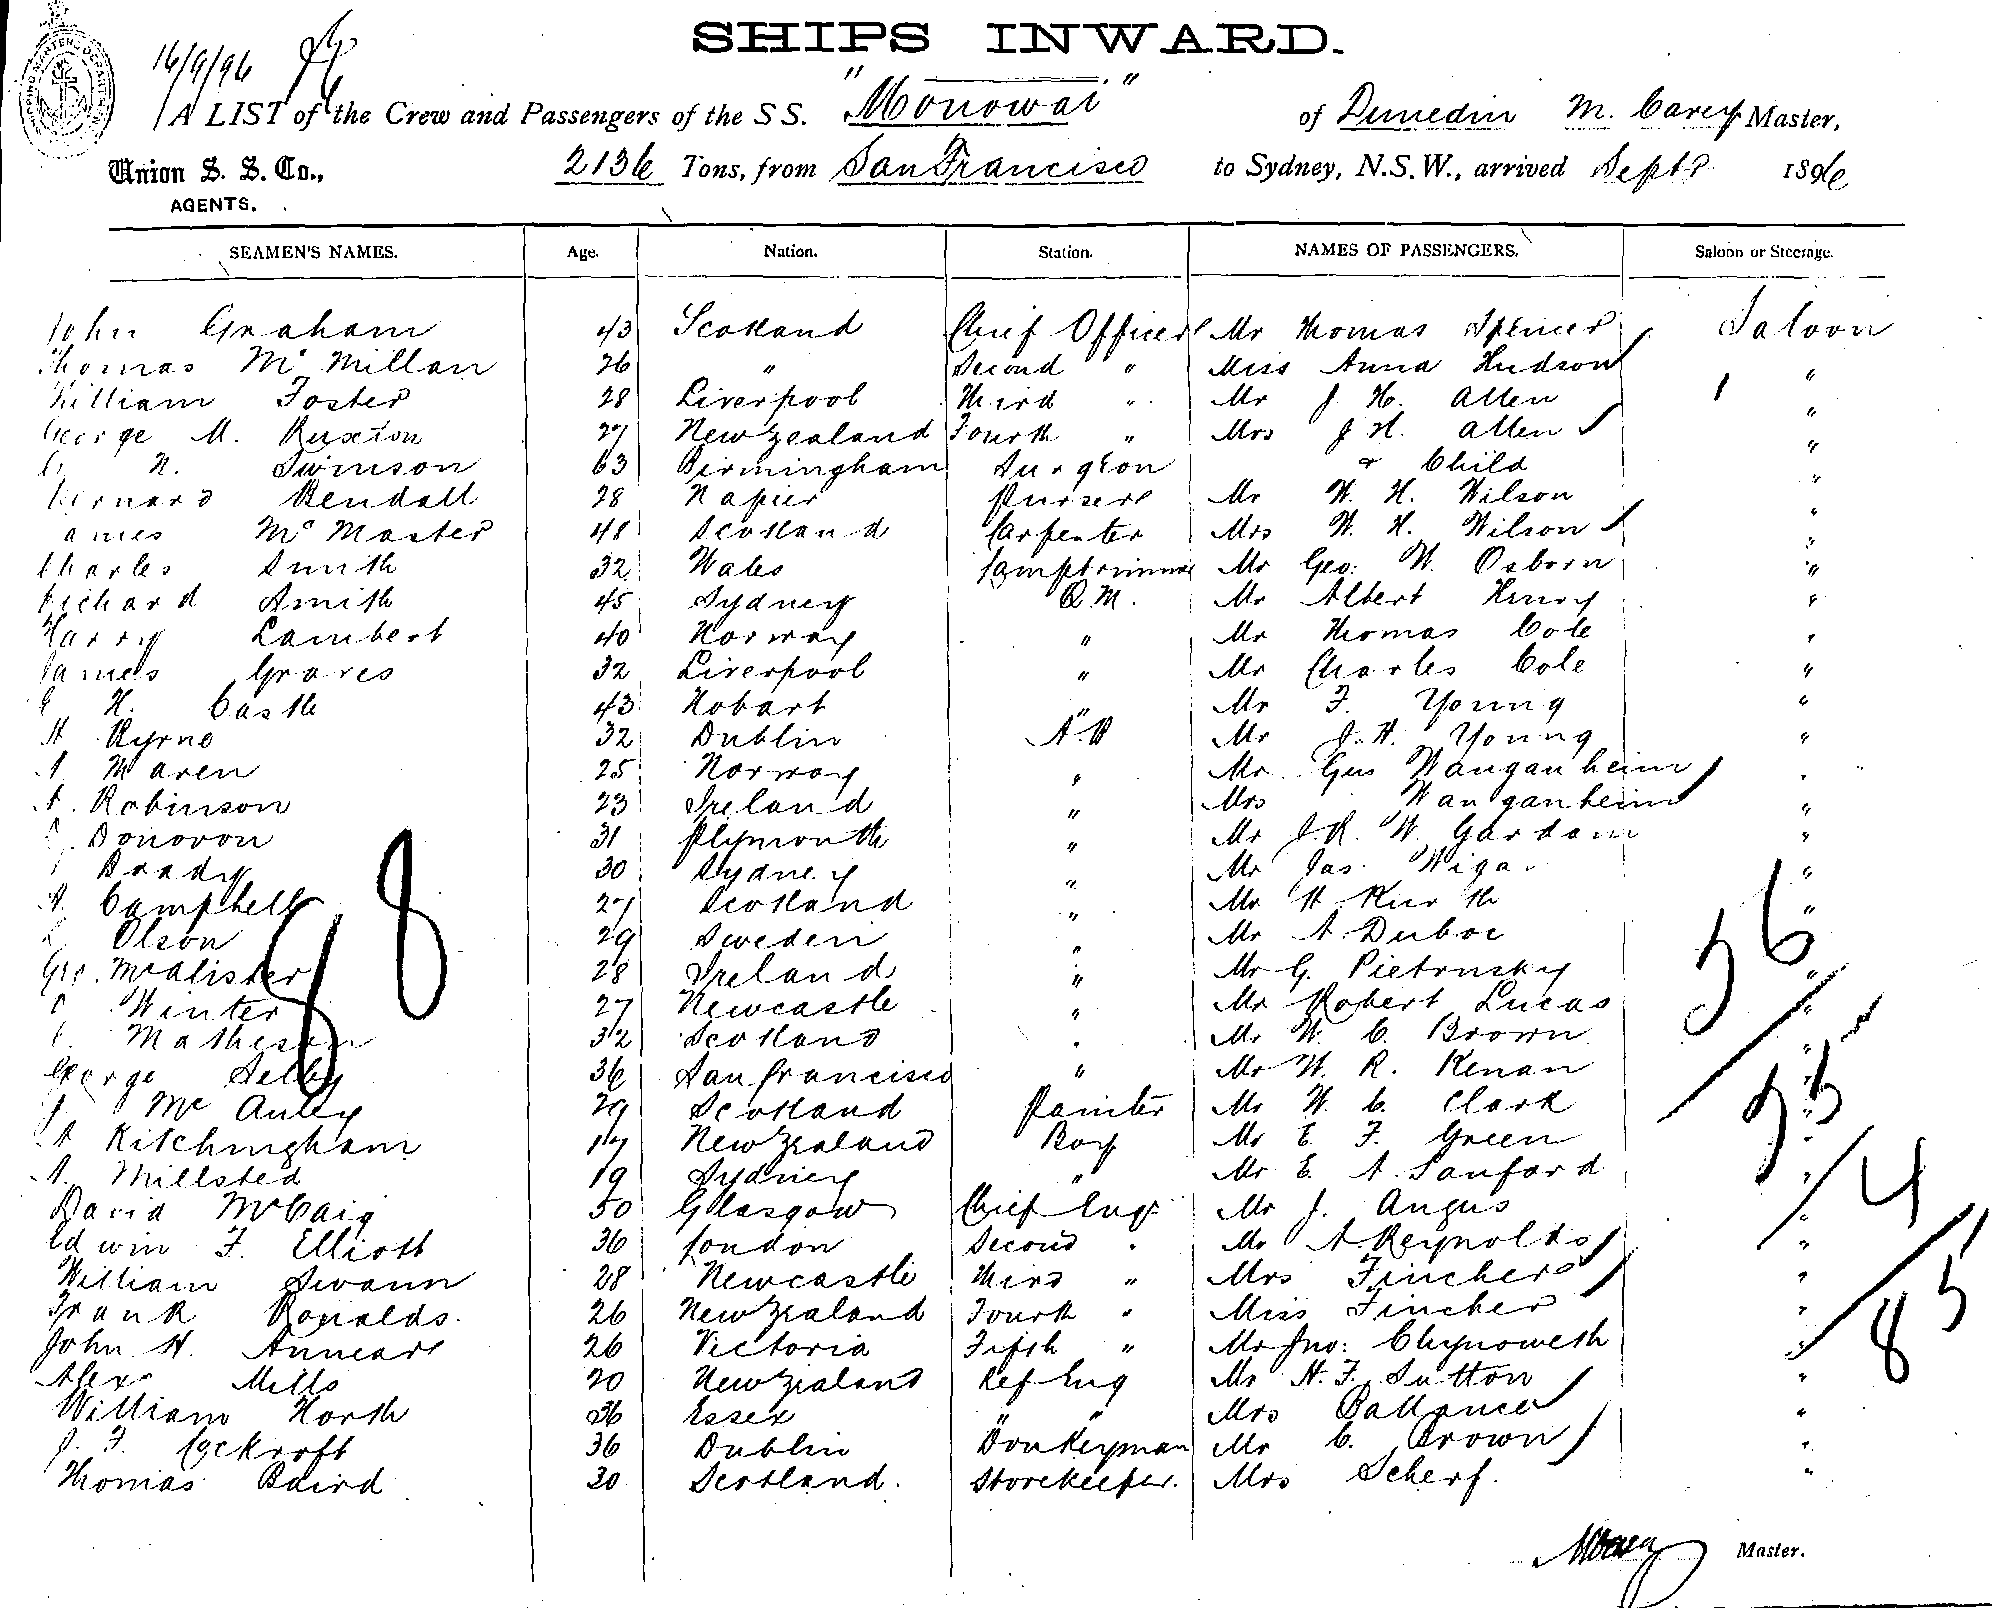 SHIPS INWARD.
16/9/96
A LIST of the Crew and Passengers of the SS. "Monowai" of Dunedin M. Carey Master,
Union S. S. Co., 2136 Tons, from San Francisco to Sydney, N.S.W., arrived Sept 1896
AGENTS.
SEAMEN'S NAMES. Age. Nation. Station. NAMES OF PASSENGERS. Saloon or Steerage.
John Graham 43 Scotland Chief Officer Mr Thomas Spencer Saloon
Thomas McMillan 26 " Second " Miss Anna Hudson "
William Foster 28 Liverpool Third " Mr J. H. Allen "
George M. Ruxton 27 New Zealand Fourth " Mrs J H. Allen "
N. Swinson 63 Birmingham Surgeon & Child "
Bernard Rendall 28 Napier Purser Mr W. H. Wilson "
James McMaster 48 Scotland Carpenter Mrs W. H. Wilson "
Charles Smith 32 Wales Lamptrimmer Mr Geo. W. Osborn "
Richard Smith 45 Sydney Q.M. Mr Albert Henry "
Harry Lambert 40 Norway " Mr Thomas Cole "
James Graves 32 Liverpool " Mr Charles Cole "
H. Castle 43 Hobart " Mr F. Young "
A Byrne 32 Dublin A.B Mr J. H. Young "
Maren 25 Norway " Mr Gus Wanganheim "
A. Robinson 23 Ireland " Mrs Wanganheim "
Donovon 31 Plymouth " Mr J. R. W. Gardam "
Brady 30 Sydney " Mr Jas. "
A. Campbell 27 Scotland " Mr H. Kurth "
Olson 29 Sweden " Mr A. Duboc
Geo. McAlister 28 Ireland " Mr G. Pietrusky "
Winter 27 Newcastle " Mr Robert Lucas "
Matheson 32 Scotland " Mr W. C. Brown "
George Selby 36 San Francisco " Mr W. R. Kenan "
J. McAuley 29 Scotland Painter Mr W. C. Clark "
A Kitchingham 17 New Zealand Boy Mr E. F. Green "
A. Millsted 19 Sydney " Mr E. A. Sanford "
David McCaig 50 Glasgow Chief Eng. Mr J. Angus "
Edwin F. Elliott 36 London Second " Mr A. Reynolds "
William Swann 28 Newcastle Third " Mrs Fincher "
Frank Ronalds. 26 New Zealand Fourth " Miss Fincher "
John H. Annear 26 Victoria Fifth " Mr Jno: Chynoweth "
Alexr Mills 20 New Zealand Ref Eng Mr H. F. Sutton "
William North 36 Essex " " Mrs Ballance "
J. F. Cockroft 36 Dublin Donkeyman Mr C. Brown "
Thomas Baird 30 Scotland. Storekeeper. Mrs Scherf. "
98
MCarey Master.